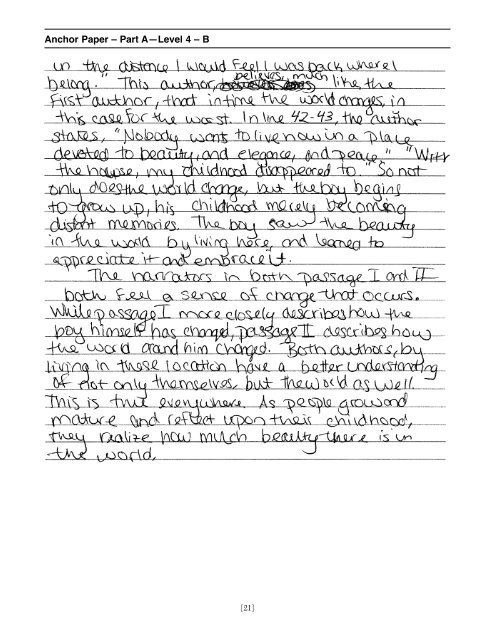 Anchor Paper – Part A—Level 4 – B
in the distance I would feel I was back where I
belong." This author, believes, much like the
first author, that in time the world changes, in
this case for the worst. In line 42-43, the author
states, "Nobody wants to live now in a place
devoted to beauty, and elegance, and peace," "With
the house, my childhood disappeared to." So not
only does the world change, but the boy begins
to grow up, his childhood merely becoming
distant memories. The boy saw the beauty
in the world by living here, and learned to
appreciate it and embrace it.
The narrators in both passage I and II
both feel a sense of change that occurs.
While passage I more closely describes how the
boy himself has changed, passage II describes how
the world around him changed. Both authors, by
living in those location have a better understanding
of not only themselves, but the world as well.
This is true everywhere. As people grow and
mature and reflect upon their childhood,
they realize how much beauty there is in
the world.
[21]